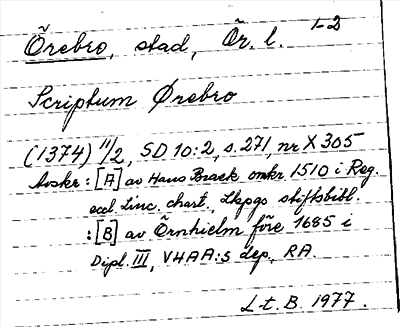 Örebro, stad, Ör. l. 1-2
Scriptum Ørebro
(1374) 11/2, SD 10:2, s. 271, nr X 305
Avskr: [A] av Hans Brask omkr 1510 i Reg.
eccl Linc. chart., Lkpgs stiftsbibl.
: [B] av Örnhielm före 1685 i
Dipl. III, VHAA:s dep., RA.
L-t. B. 1977.